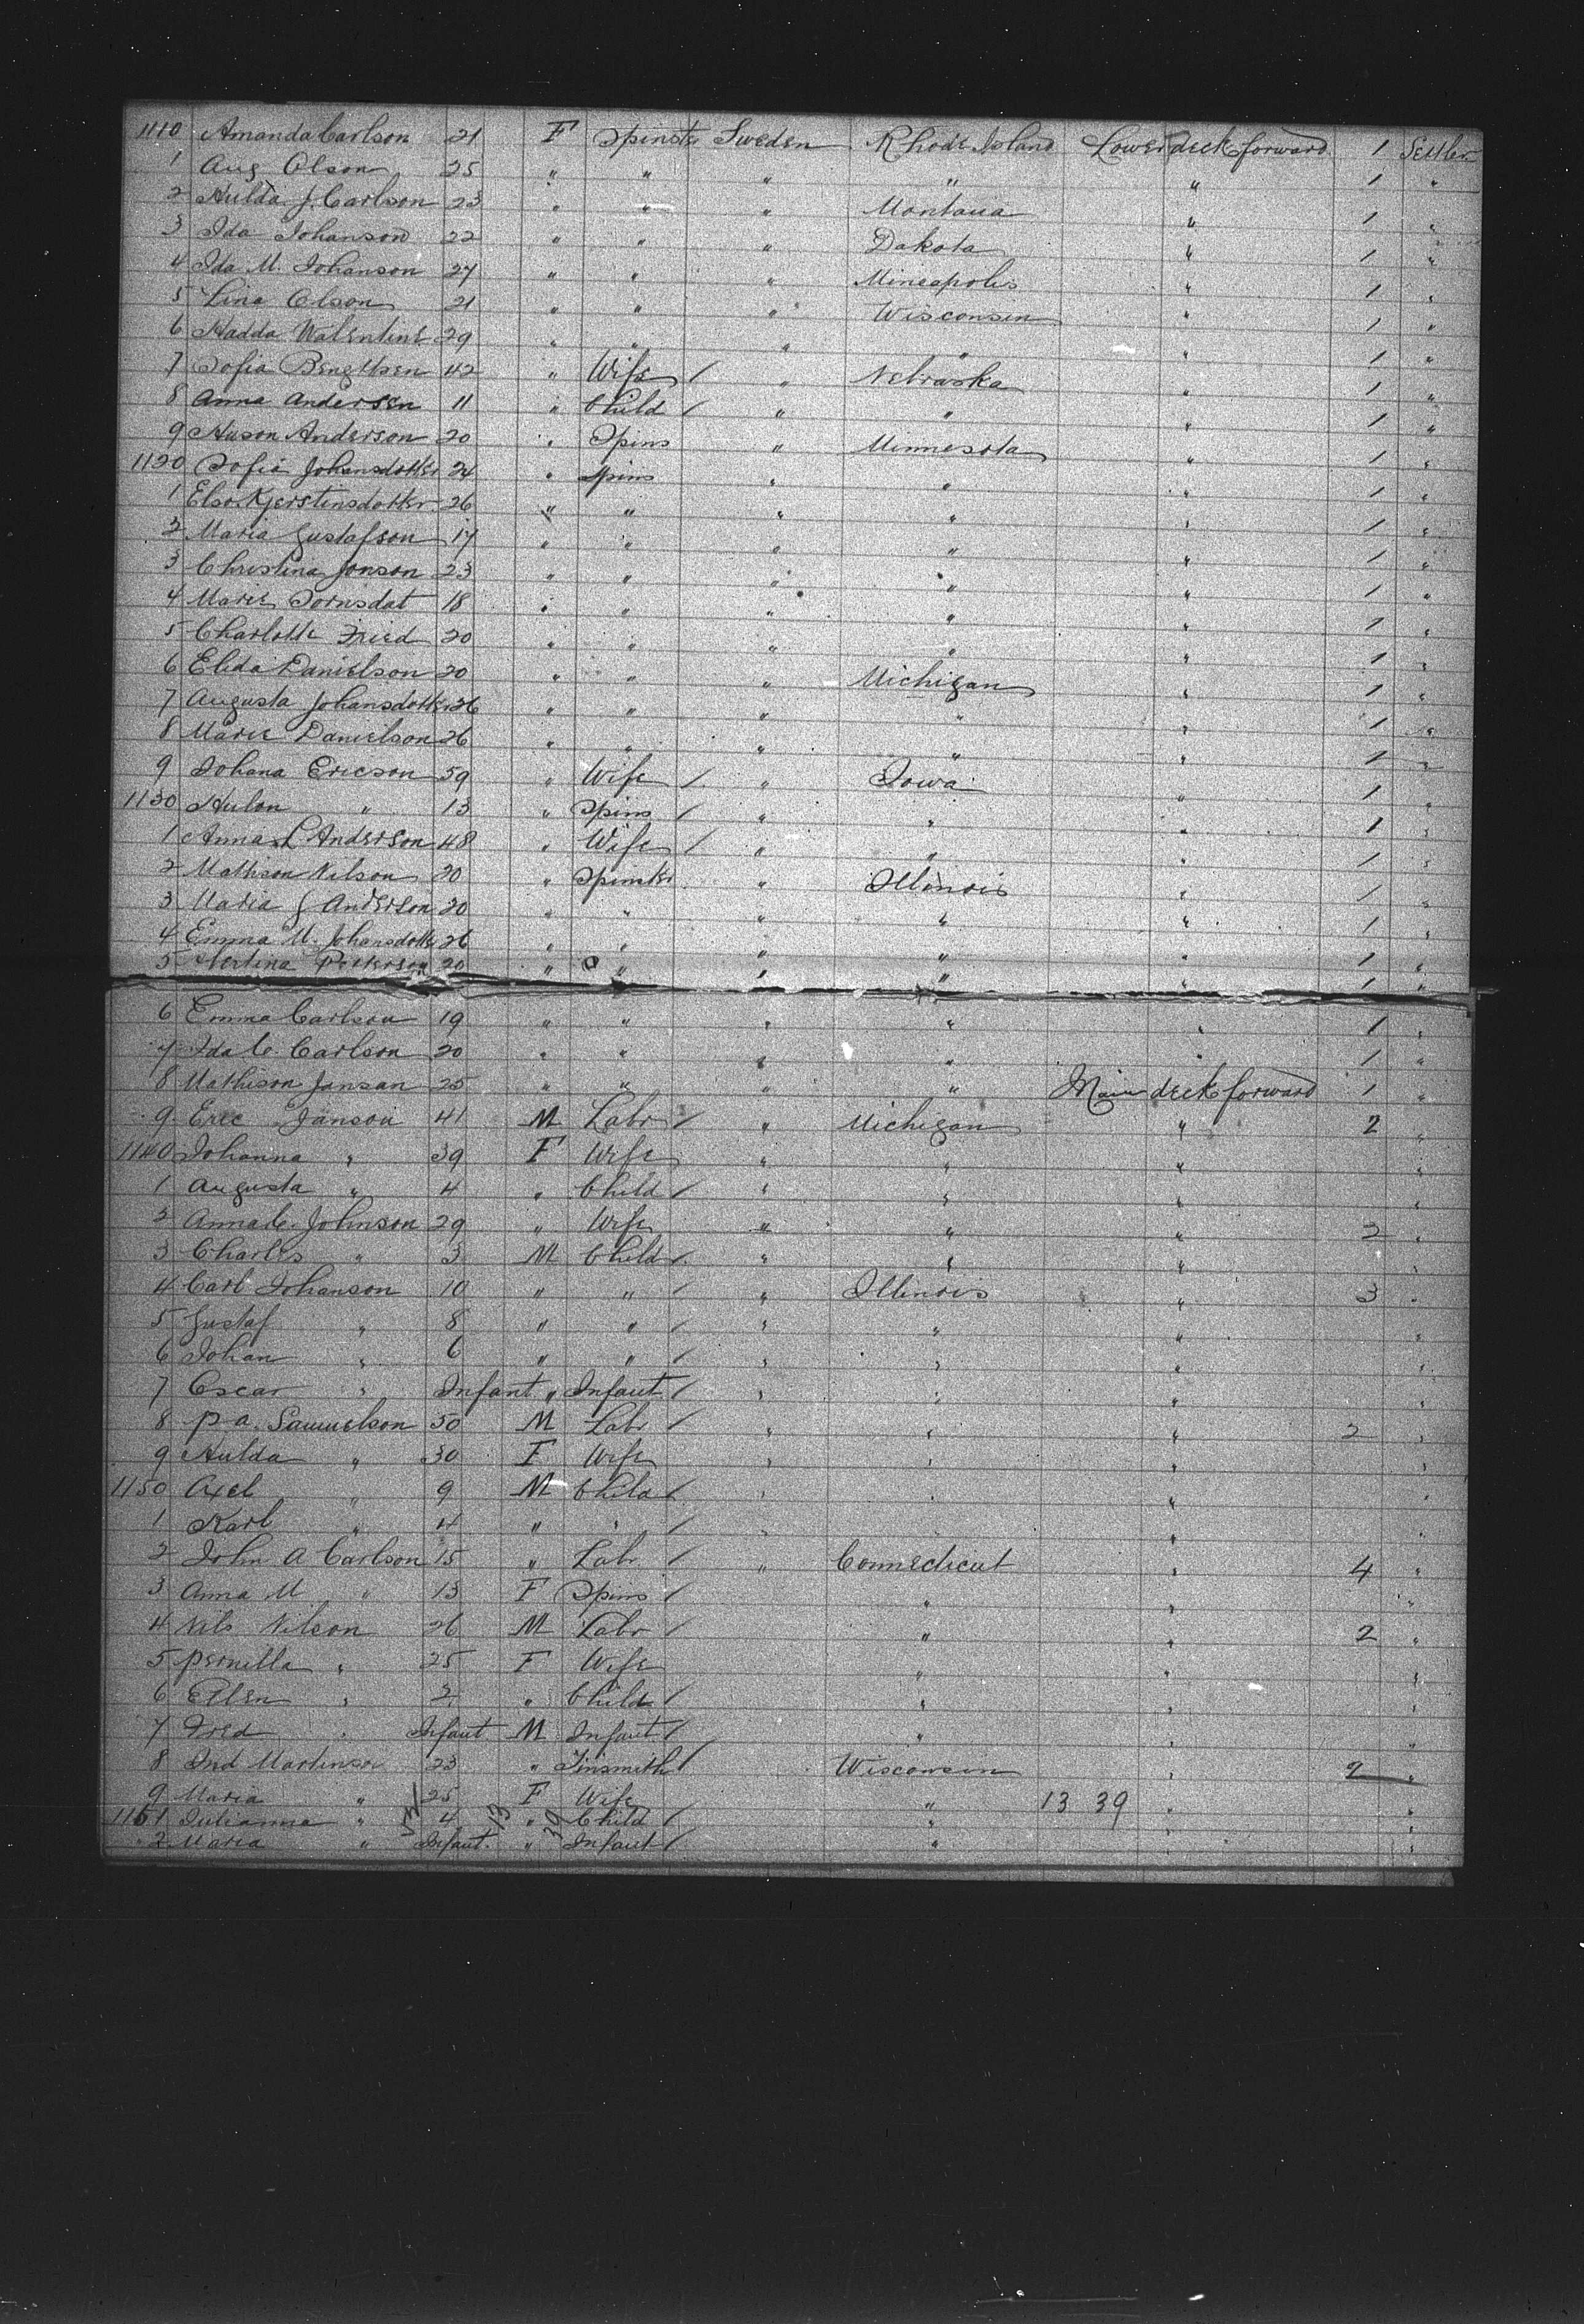 1110 Amanda Carlson 21 F Spinstr Sweden Rhode Island Lowerdeck forward 1 Settler
1 Aug Olson 25 " " " " " 1 "
2 Hulda J. Carlson 23 " " " Montana " 1 "
3 Ida Johanson 22 " " " Dakota " 1 "
4 Ida M. Johanson 27 " " " Mineapolis " 1 "
5 Lina Olson 21 " " " Wisconsin " 1 "
6 Hadda Walentine 29 " " " " " 1 "
7 Sofia Bengtsen 42 " Wife / " Nebraska " 1 "
8 Anna Andersen 11 " Child / " " " 1 "
9 Anderson 20 " Spins " Minnesota " 1 "
1120 Sofia Johansdotter 24 " Spins " " " 1 "
1 Elso. Kjerstinsdotter 26 " " " " " 1 "
2 Maria Gustafson 17 " " " " " 1 "
3 Christina Jonson 23 " " " " " 1 "
4 Marie 18 " " " " " 1 "
5 Charlotte Fried 20 " " " " " 1 "
6 Elida Danielson 20 " " " Michigan " 1 "
7 Augusta Johansdotter 26 " " " " " 1 "
8 Marie Danielson 26 " " " " " 1 "
9 Johana Ericson 59 " Wife / " Iowa " 1 "
1130 " 13 " Spins / " " " 1 "
1 Anna L Anderson 48 " Wife / " " " 1 "
2 Mathison Nilson 20 " Spinster " Illinois " 1 "
3 Maria G Anderson 20 " " " " " 1 "
4 Emma M. Johansdotter 26 " " " " " 1 "
5 Petterson 20 " " " " " 1 "
6 Emma Carlson 19 " " " " " 1 "
7 Ida C. Carlson 20 " " " " " 1 "
8 Mathison Jansan 25 " " " " Main deck forward 1 "
9 Eric Janson 41 M Labr / " Michigan " 2 "
1140 Johanna " 39 F Wife " " " "
1 Augusta " 4 " Child / " " " "
2 Anna C. Johnson 29 " Wife " " " 2 "
3 Charles " 3 M Child / " " " "
4 Carl Johanson 10 " " / " Illinois " 3 "
5 Gustaf " 8 " " / " " " "
6 Johan " 6 " " / " " " "
7 Oscar " Infant " Infant / " " " "
8 P. A. Samuelson 50 M Labr / " " " 2 "
9 Hulda " 30 F Wife " " " "
1150 Axel " 9 M Child / " " " "
1 Karl " 4 " " / " " "
2 John A Carlson 15 " Labr / " Connecticut " 4 "
3 Anna M " 13 F Spins / " " "
4 Nils Nilson 26 M Labr / " " 2 "
5 Pernilla " 25 F Wife " " "
6 Ellen " 2 " Child / " " "
7 Fred " Infant M Infant / " " "
8 Martinson 23 " Tinsmith / Wisconsin " 2 "
9 Maria " 25 F Wife " 13 39 " "
1161 Julianna " 4 13 " 39 Child / " " "
2 Maria " Infant " Infant / " " "